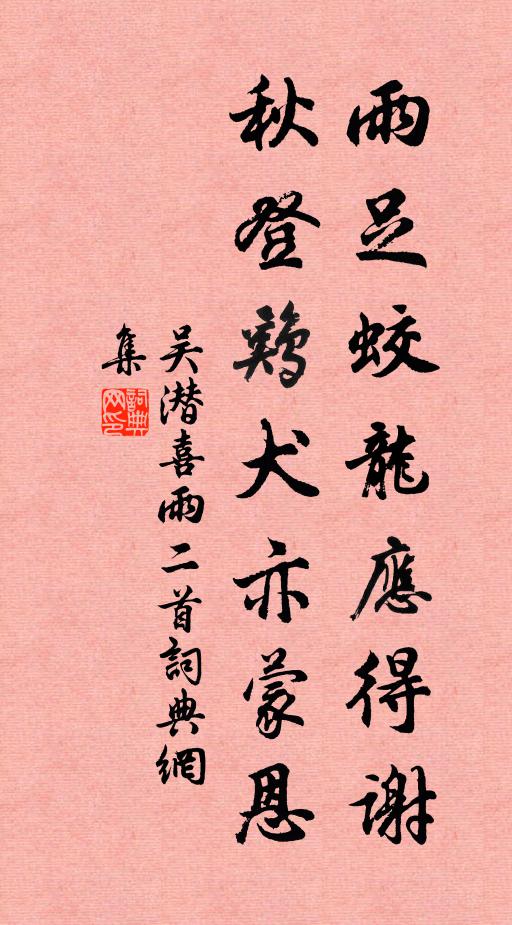 雨足蛟龍應得謝
秋登鷄犬亦蒙恩
吴潜喜雨二首詞典網
集
詞典网印